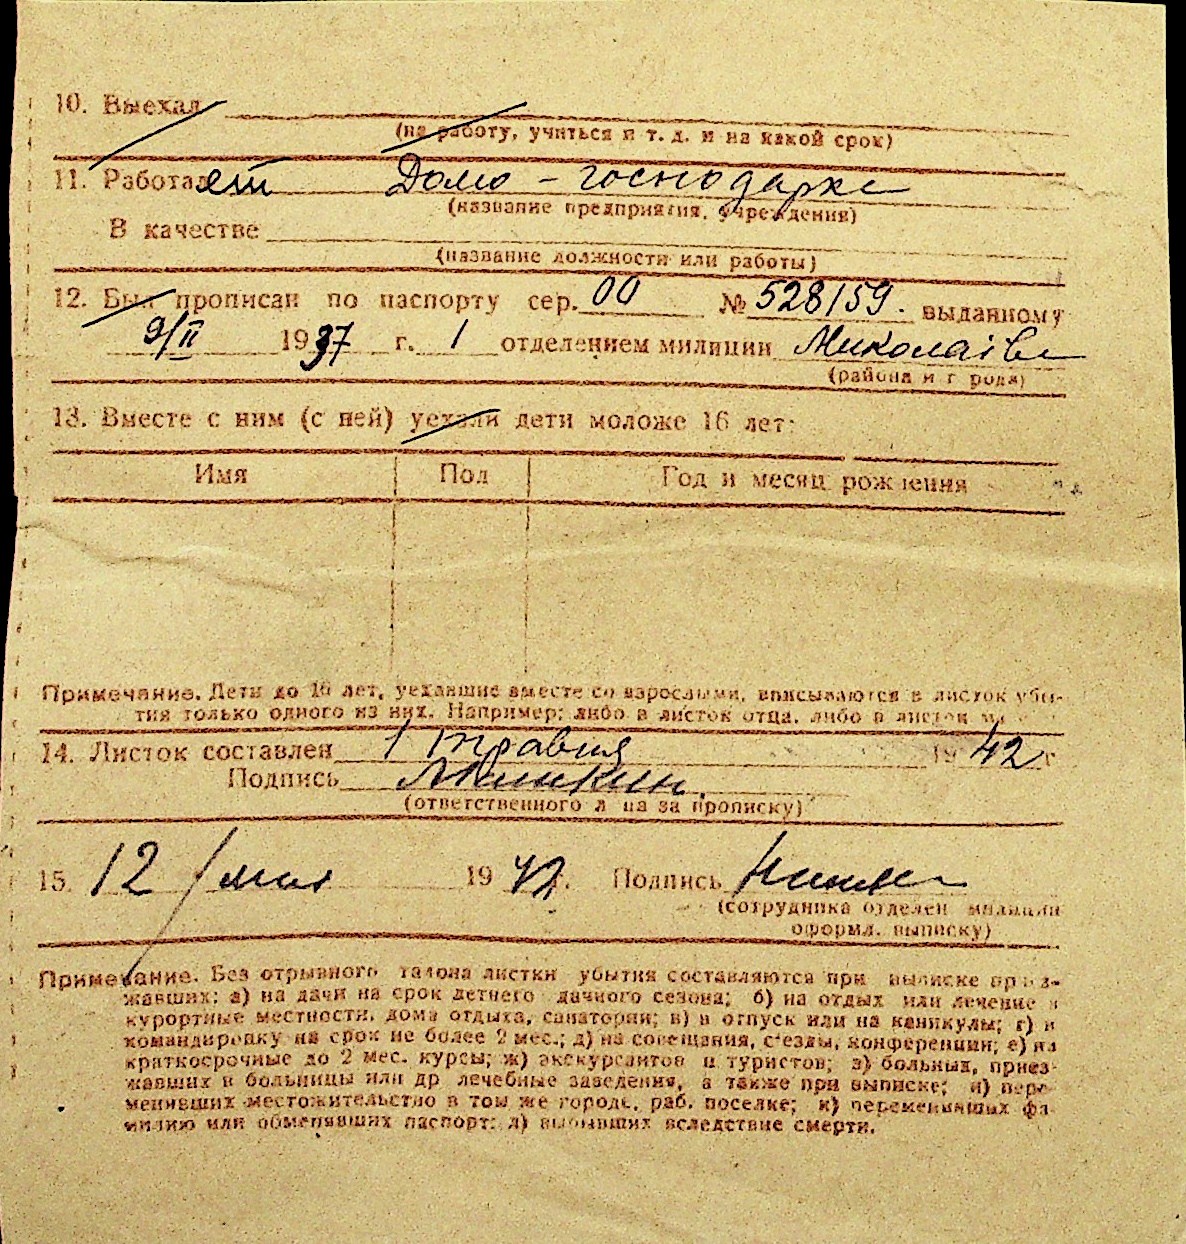 10. Выехал
(на работу, учиться и т. д. и на какой срок)
11. Работает Домо - господарка
(название предприятия, учреждения)
В качестве
(название должности или работы)
12. Был прописан по паспорту сер. 00 № 528159. выданному
9/II 1937 г. 1 отделением милиции Миколаїва
(района и города)
13. Вместе с ним (с ней) уехали дети моложе 16 лет:
Имя Пол Год и месяц рождения
Примечание. Дети до 16 лет, уехавшие вместе со взрослыми, вписываются в листок убы-
тия только одного из них. Например: либо в листок отца, либо в листок
14. Листок составлен 1 травня 1942 г
Подпись
(ответственного лица за прописку)
15. 12 / мая 1942 г. Подпись
(сотрудника отделен милиции
оформл. выписку)
Примечание. Без отрывного талона листки убытия составляются при выписке приез-
жавших: а) на дачи на срок летнего дачного сезона; б) на отдых или лечение в
курортные местности, дома отдыха, санатории; в) в отпуск или на каникулы; г) в
командировку на срок не более 2 мес.; д) на совещания, с'езды, конференции; е) на
краткосрочные до 2 мес. курсы; ж) экскурсантов и туристов; з) больных, приез-
жавших в больницы или др лечебные заведения, а также при выписке; и) пере-
менивших местожительство в том же городе, раб. поселке; к) переменивших фа-
милию или обменявших паспорт; л) выбывших вследствие смерти.